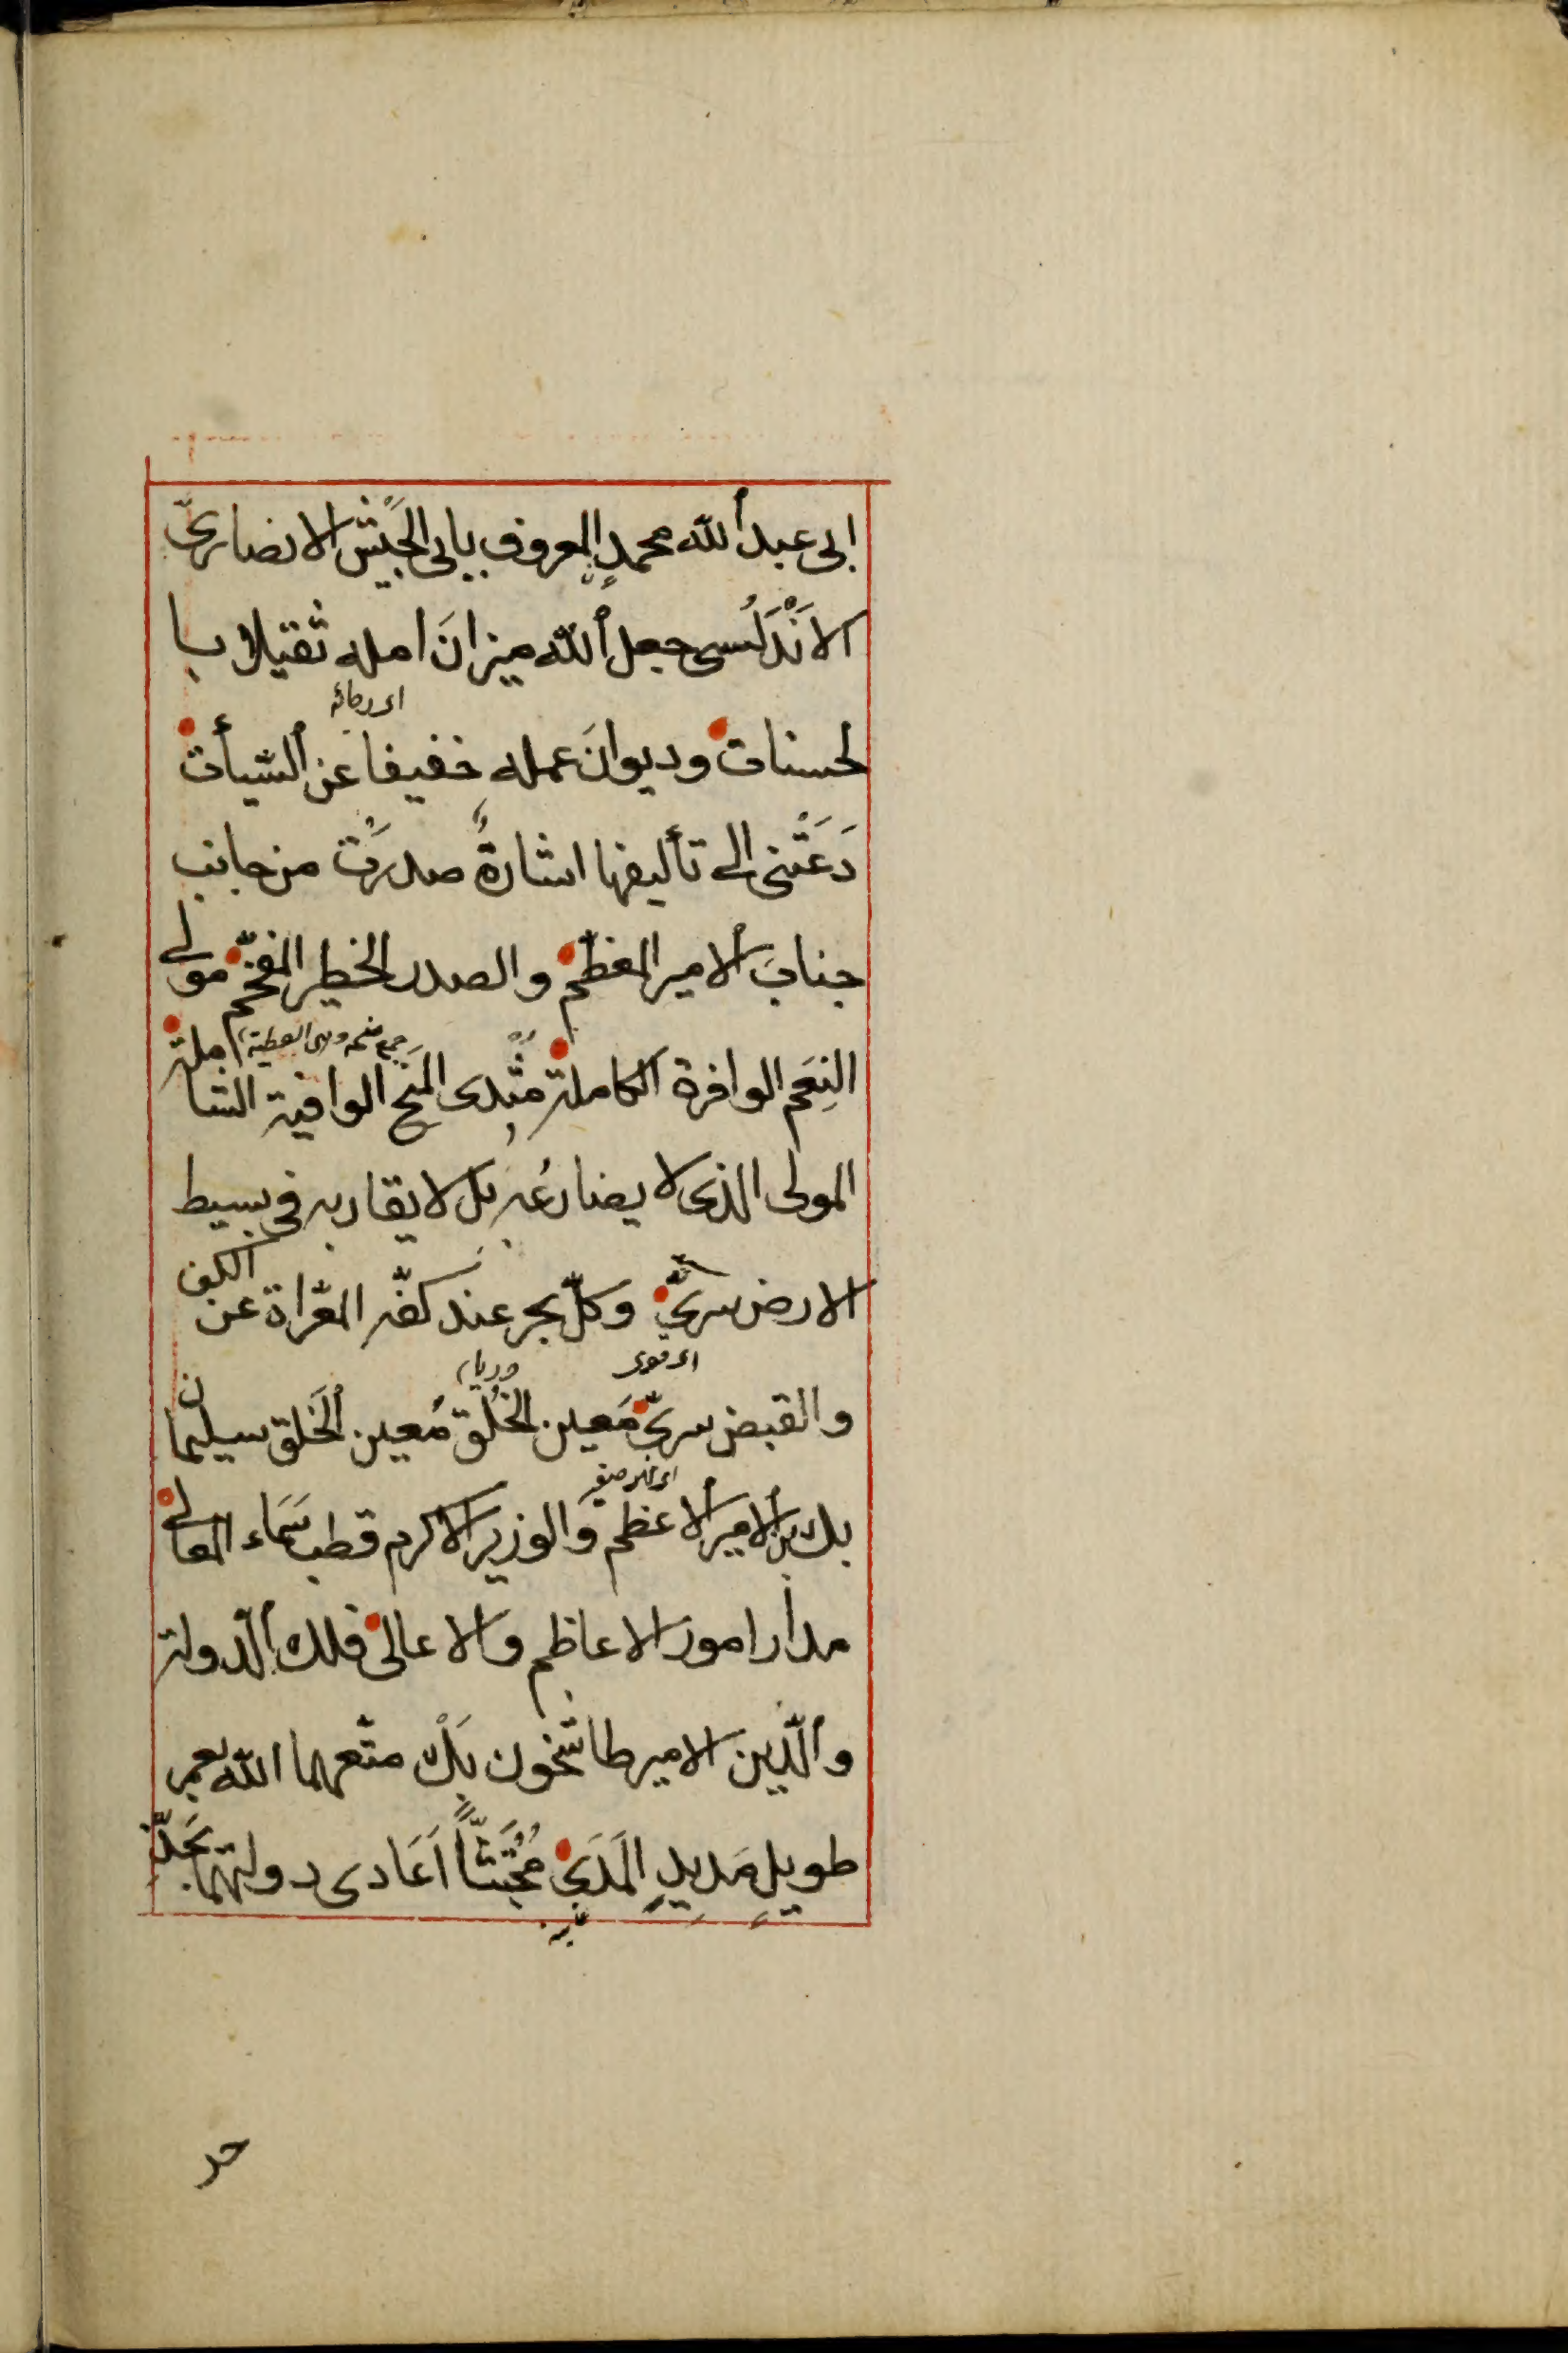 ابى عبد الله محمدٍ المعروف بابى الجَيْش الانصارىّ
الاَنْدَلُسى جعل الله ميزانَ امله ثقيلا با
لحسنات وديوانَ عمله خفيفا عن السّيأت
دَعَتْنى الى تأليفها اشارةٌ صدرَتْ من جانب
جنابِ الامير المعظّم والصدر الخطير المفخّم مولى
جمع منحه وهى العطية
النِعَم الوافرة الكاملة مُبْدى المِنَح الوافية الشاملة
المولى الذى لا يضارعُه بل لا يقاربه فى بسيط
الارض سرىّ وكلّ بحر عند كفّه المعّراة عن الكف
والقبض سرىّ مَعين الخُلق مُعين الخَلق سليمان
بك بن الامير الاعظم والوزير الاكرم قطب سَماء المعالى
مدار امور الاعاظم والاعالى فلك الدولة
والدّين الامير طاشخون بَكْ متّعهما الله بعمر
طويلٍ مَدِيدٍ المَدَى مُجْتَثّاً اَعَادى دولتهما بَجدّ